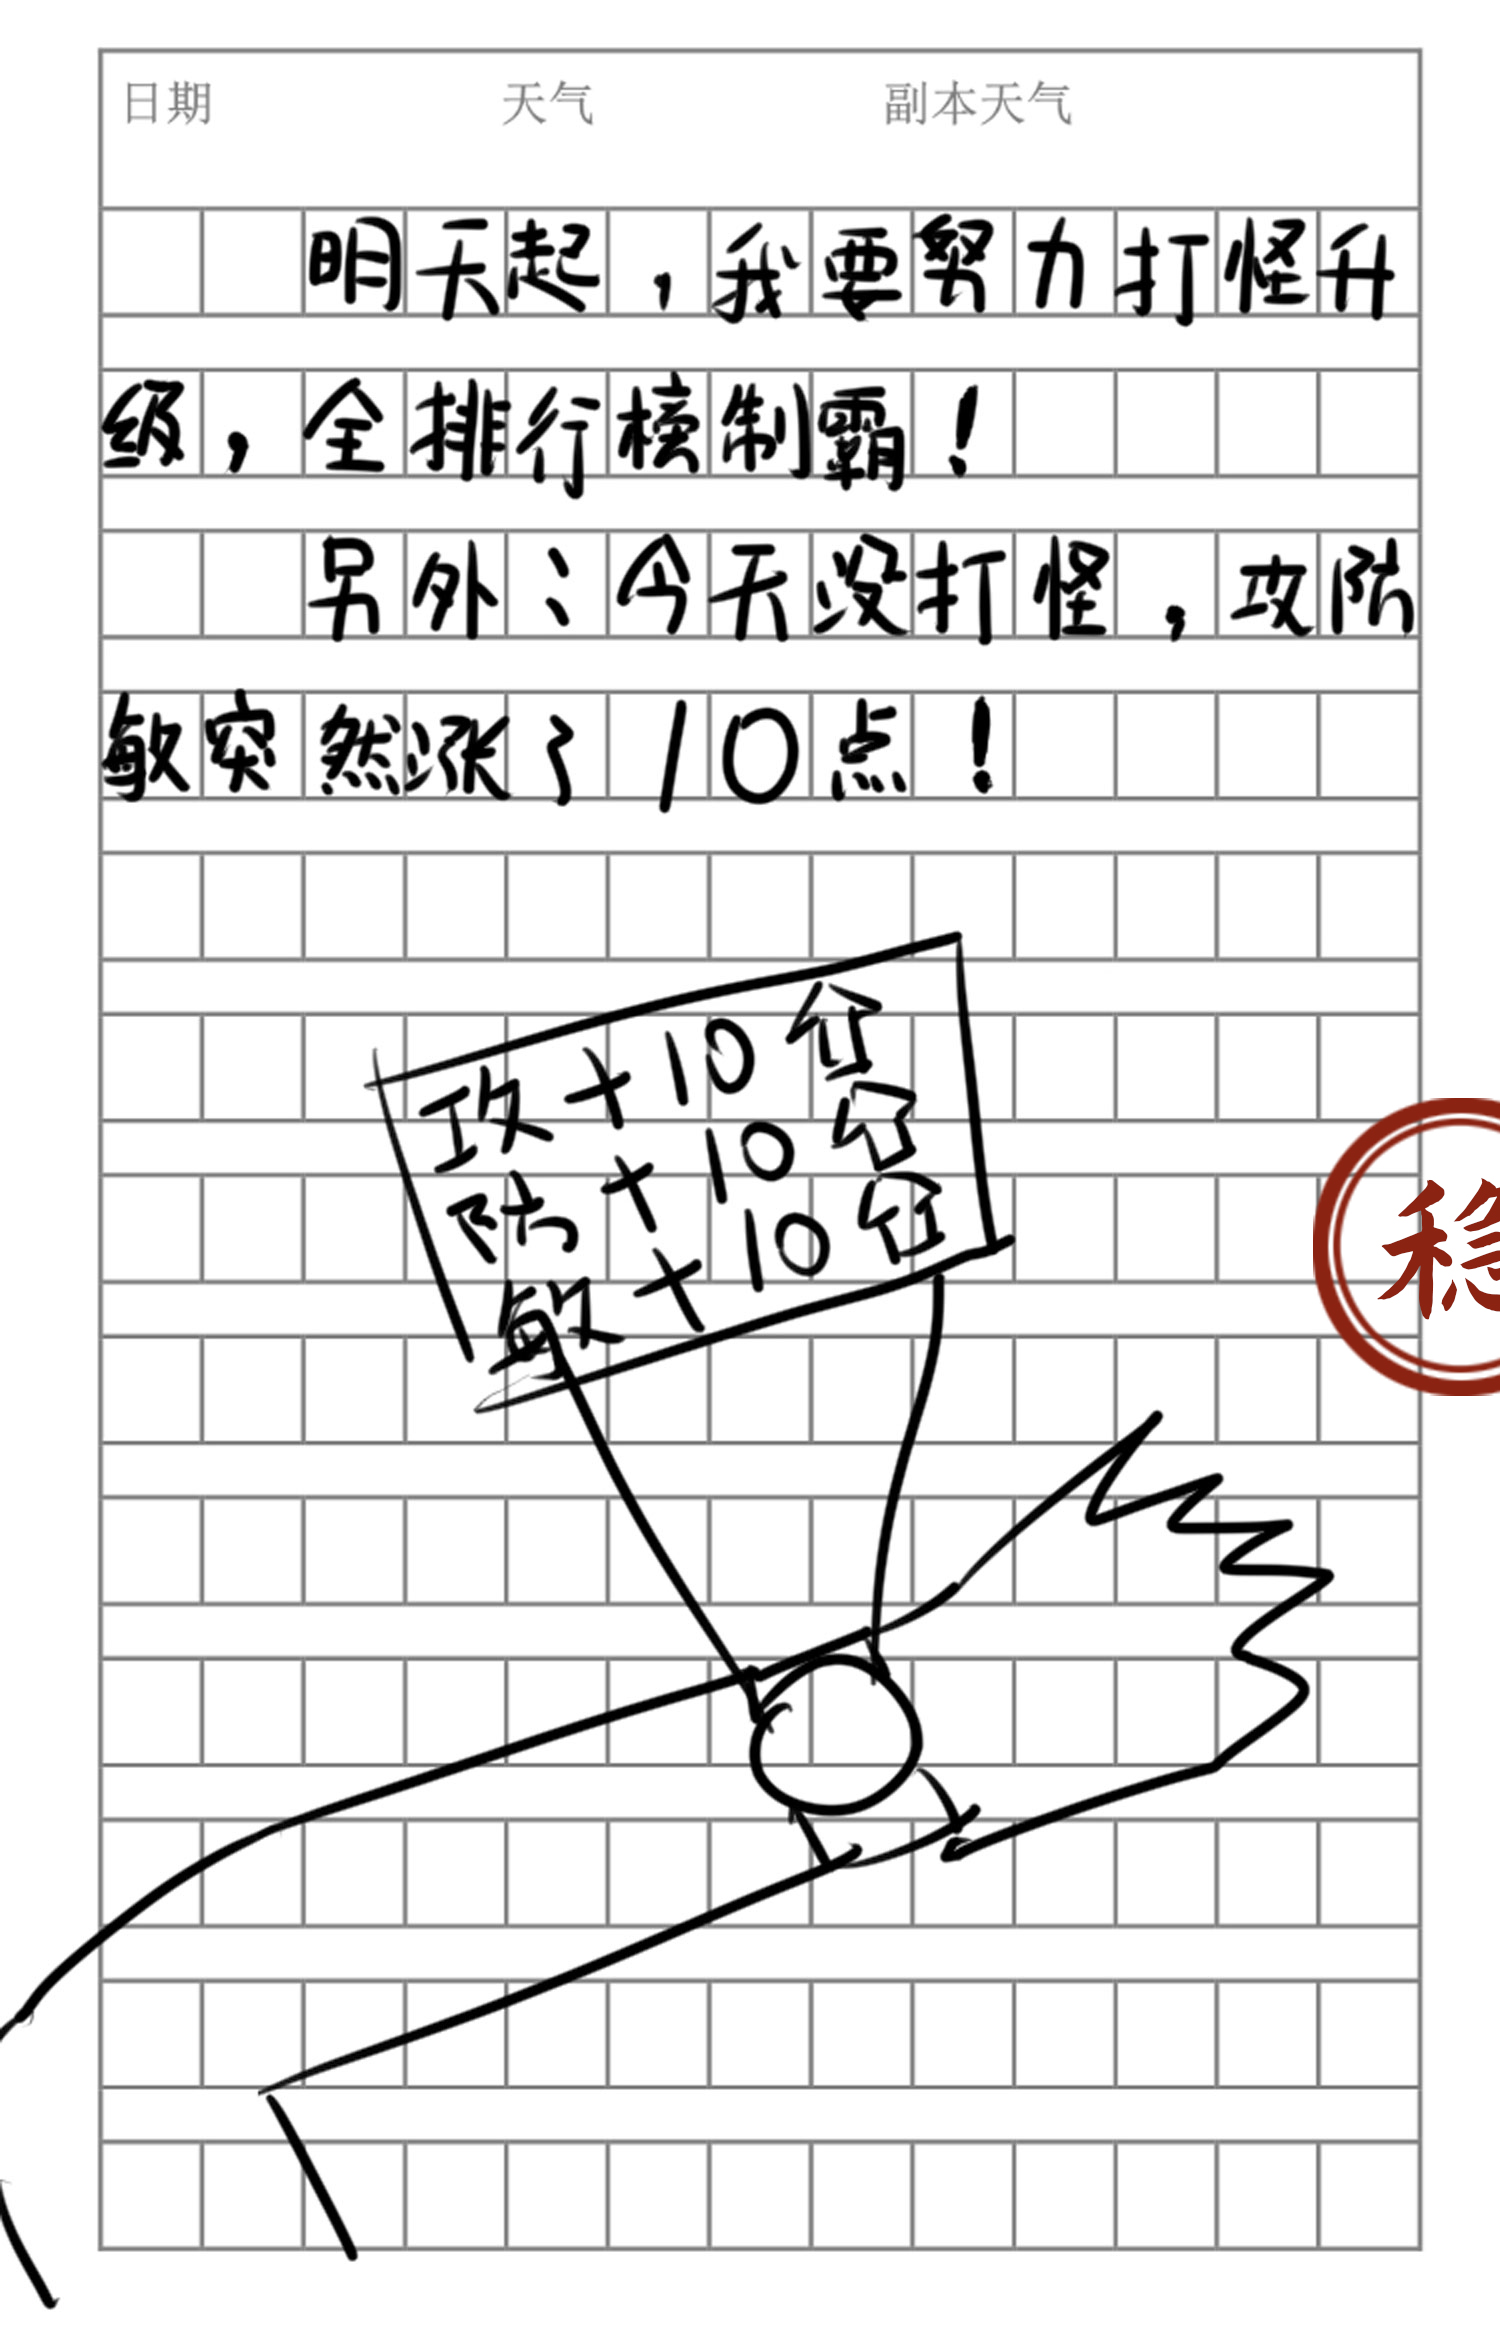 日期 天气 副本天气
明天起，我要努力打怪升
级，全排行榜制霸！
另外：今天没打怪，攻防
敏突然涨了10点！
攻+10分
防+10分
敏+10分
稳